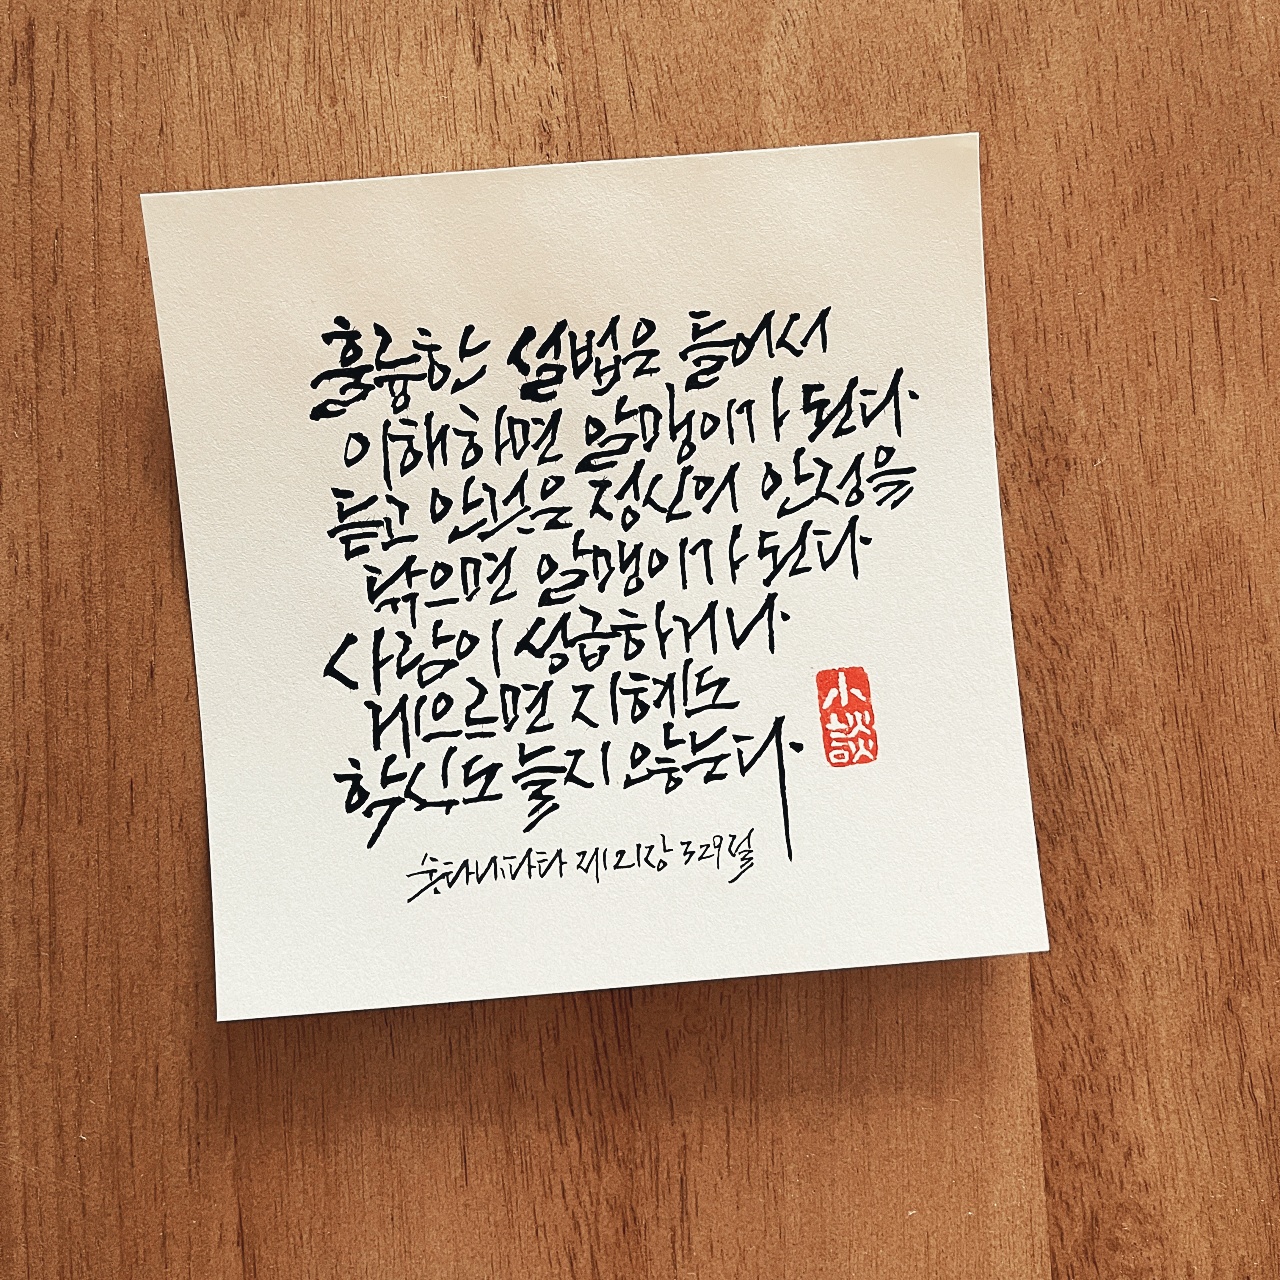 훌륭한 설법은 들어서
이해하면 알맹이가 된다
듣고 안 것은 정신의 안정을
닦으면 알맹이가 된다
사람이 성급하거나
게으르면 지혜도
학식도 늘지 않는다
숫타니파타 제21장 329절
小談